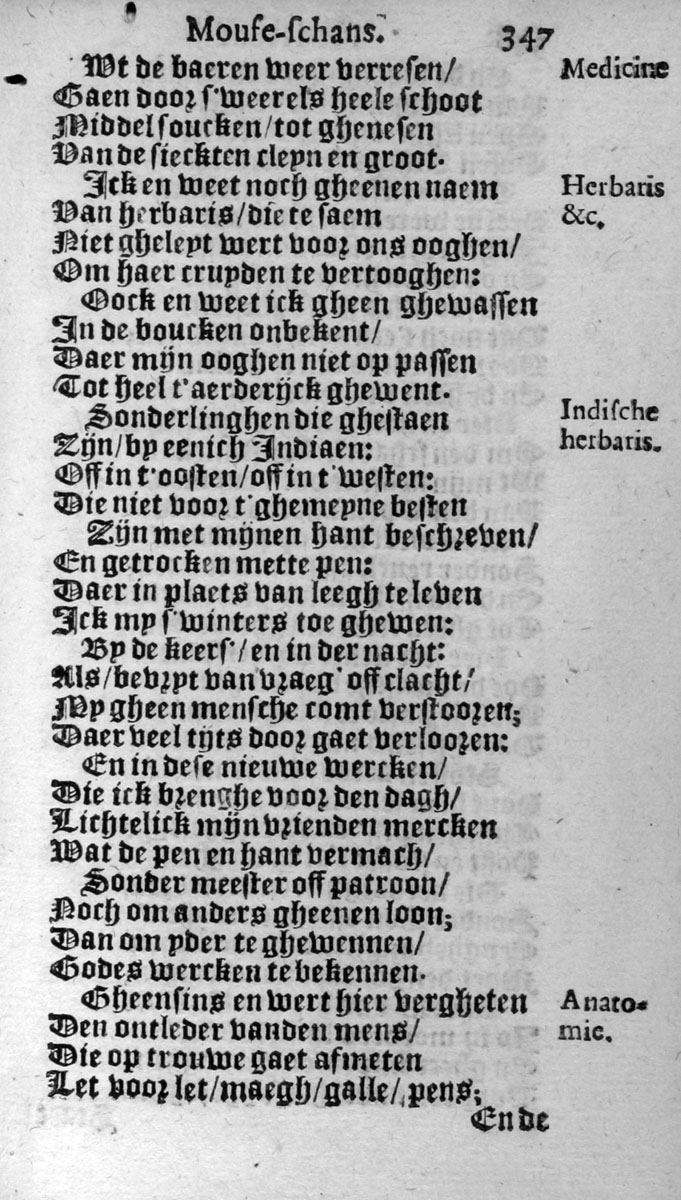 Mouse-schans. 347
Wt de baeren weer verresen/ Medicine
Gaen door s'weerels heele schoot
Middel soucken/tot ghenesen
Van de sieckten cleyn en groot.
Ick en weet noch gheenen naem Herbaris
Van herbaris/die te saem &c.
Niet gheleyt wert voor ons ooghen/
Om haer cruyden te vertooghen:
Oock en weet ick gheen ghewassen
In de boucken onbekent/
Daer mijn ooghen niet op passen
Tot heel t'aerderijck ghewent.
Sonderlinghen die ghestaen Indische
Zijn/by eenich Indiaen: herbaris.
Off in t'oosten/off in t'westen:
Die niet voor t'ghemeyne besten
Zijn met mijnen hant beschreven/
En getrocken mette pen:
Daer in plaets van leegh te leven
Ick my s'winters toe ghewen:
By de keers'/en in der nacht:
Als/bevrypt van vraeg' off clacht/
My gheen mensche comt verstooren;
Daer veel tijts door gaet verlooren:
En in dese nieuwe wercken/
Die ick brenghe voor den dagh/
Lichtelick mijn vrienden mercken
Wat de pen en hant vermach/
Sonder meester off patroon/
Noch om anders gheenen loon;
Dan om yder te ghewennen/
Godes wercken te bekennen.
Gheensins en wert hier vergheten Anato-
Den ontleder vanden mens/ mie.
Die op trouwe gaet afmeten
Let voor let/maegh/galle/pens;
Ende